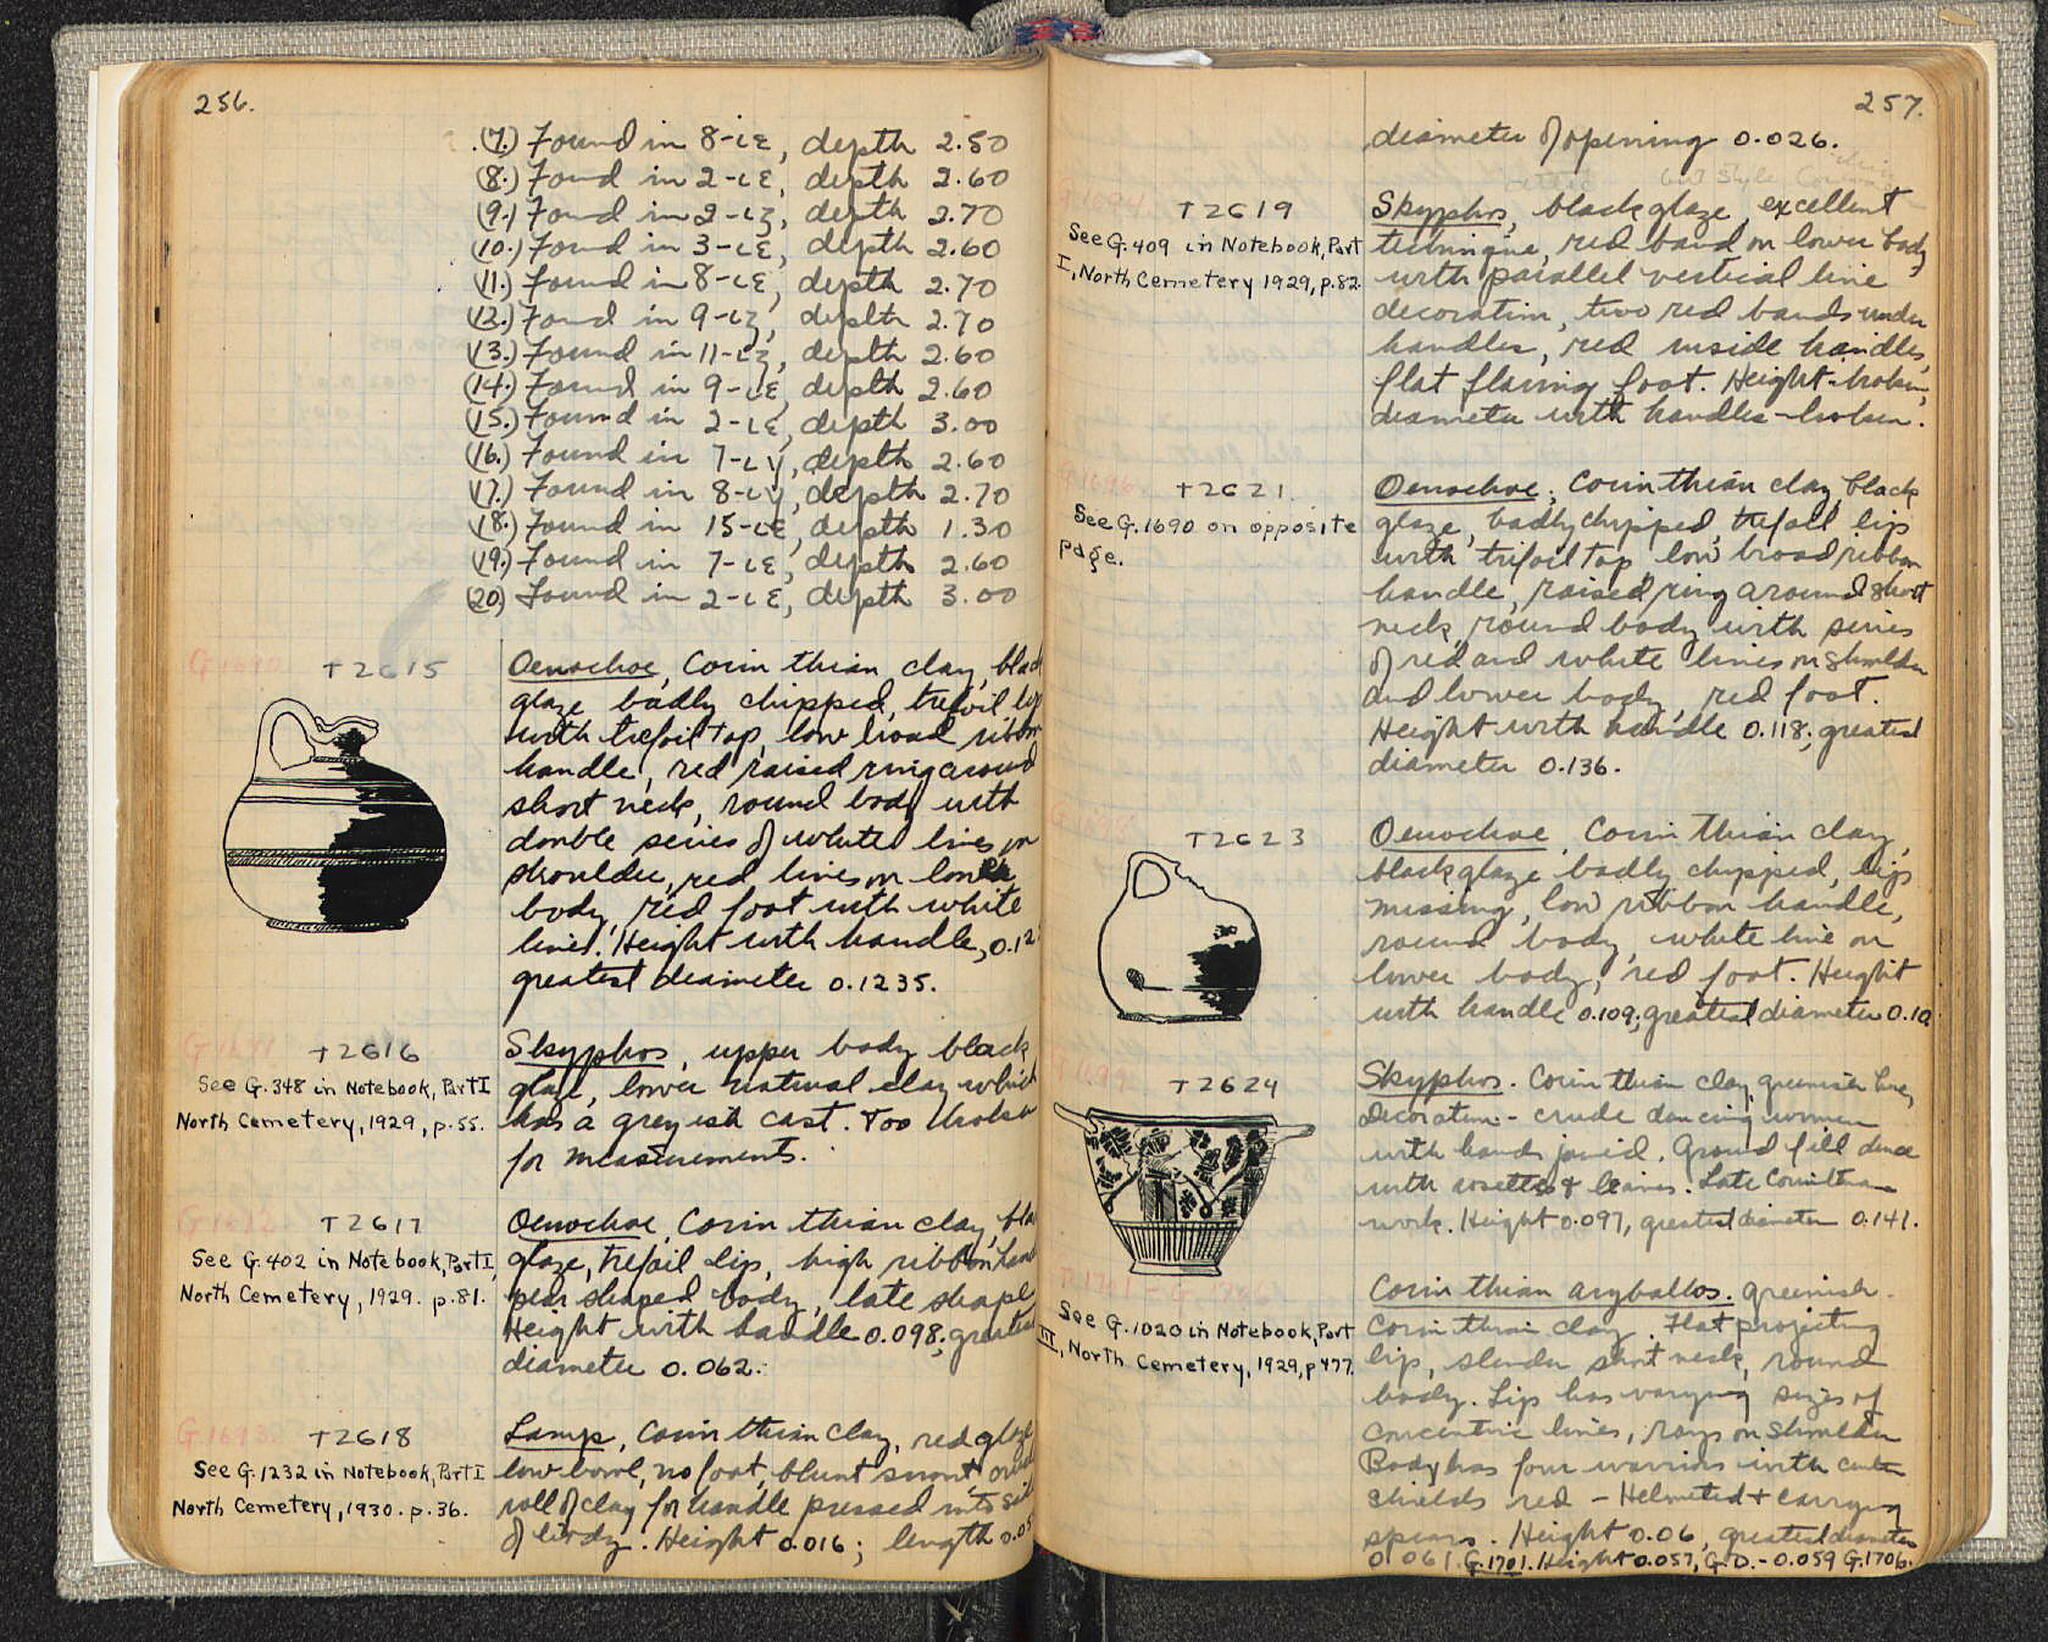 256.
(7.) Found in 8-ιε, depth 2.50
(8.) Found in 2-ιε, depth 2.60
(9.) Found in 2-ιζ, depth 2.70
(10.) Found in 3-ιε, depth 2.60
(11.) Found in 8-ιε, depth 2.70
(12.) Found in 9-ιζ, depth 2.70
(13.) Found in 11-ιζ, depth 2.60
(14.) Found in 9-ιε, depth 2.60
(15.) Found in 2-ιε, depth 3.00
(16.) Found in 7-ιγ, depth 2.60
(17.) Found in 8-ιγ, depth 2.70
(18.) Found in 15-ιε, depth 1.30
(19.) Found in 7-ιε, depth 2.60
(20) Found in 2-ιε, depth 3.00
G 1690
T2615
Oenochoe, Corinthian clay, black
glaze badly chipped, trefoil lip
with trefoil top, low broad ribbon
handle, red raised ring around
short neck, round body with
double series of white lines on
shoulder, red lines on lower
body, red foot with white
lines. Height with handle, 0.12
greatest diameter 0.1235.
G 1691
T2616
See G.348 in Notebook, Part I
North Cemetery, 1929, p.55.
Skyphos, upper body black
glaze, lower natural clay which
has a greyish cast. Too broken
for measurements.
G 1692
T2617
See G.402 in Notebook, Part I,
North Cemetery, 1929. p.81.
Oenochoe, Corinthian clay, black
glaze, trefoil lip, high ribbon handle
pear shaped body, late shape
Height with handle 0.098; greatest
diameter 0.062.
G.1693.
T2618
See G.1232 in Notebook, Part I
North Cemetery, 1930. p.36.
Lamp, Corinthian clay, red glaze
low bowl, no foot, blunt snout, crude
roll of clay for handle pressed into side
of body. Height 0.016; length 0.05
257.
diameter of opening 0.026.
T2619
See G.409 in Notebook, Part
I, North Cemetery 1929, p.82.
Skyphos, black glaze, excellent
technique, red band on lower body
with parallel vertical line
decoration, two red bands under
handles, red inside handles,
flat flaring foot. Height-broken,
diameter with handles-broken.
T2621.
See G.1690 on opposite
page.
Oenochoe, Corinthian clay, black
glaze, badly chipped, trefoil lip
with trifoil top, low broad ribbon
handle, raised ring around short
neck, round body with series
of red and white lines on shoulder
and lower body, red foot.
Height with handle 0.118; greatest
diameter 0.136.
T2623
Oenochoe, Corinthian clay,
black glaze badly chipped, lips
missing, low ribbon handle,
round body, white line on
lower body, red foot. Height
with handle 0.109; greatest diameter 0.10
T2624
Skyphos. Corinthian clay, greenish hue,
Decoration - crude dancing women
with hands joined. Ground fill dense
with rosettes & leaves. Late Corinthian
work. Height 0.097, greatest diameter 0.141.
See G.1020 in Notebook, Part
III, North Cemetery, 1929, p477.
Corinthian aryballos. greenish
Corinthian clay. Flat projecting
lip, slender short neck, round
body. Lip has varying sizes of
concentric lines, rays on shoulder
Body has four warriors with center
shields red - Helmeted + carrying
spears. Height 0.06, greatest diameter
0.061. G.1701. Height 0.057, G.D.-0.059 G.1706.